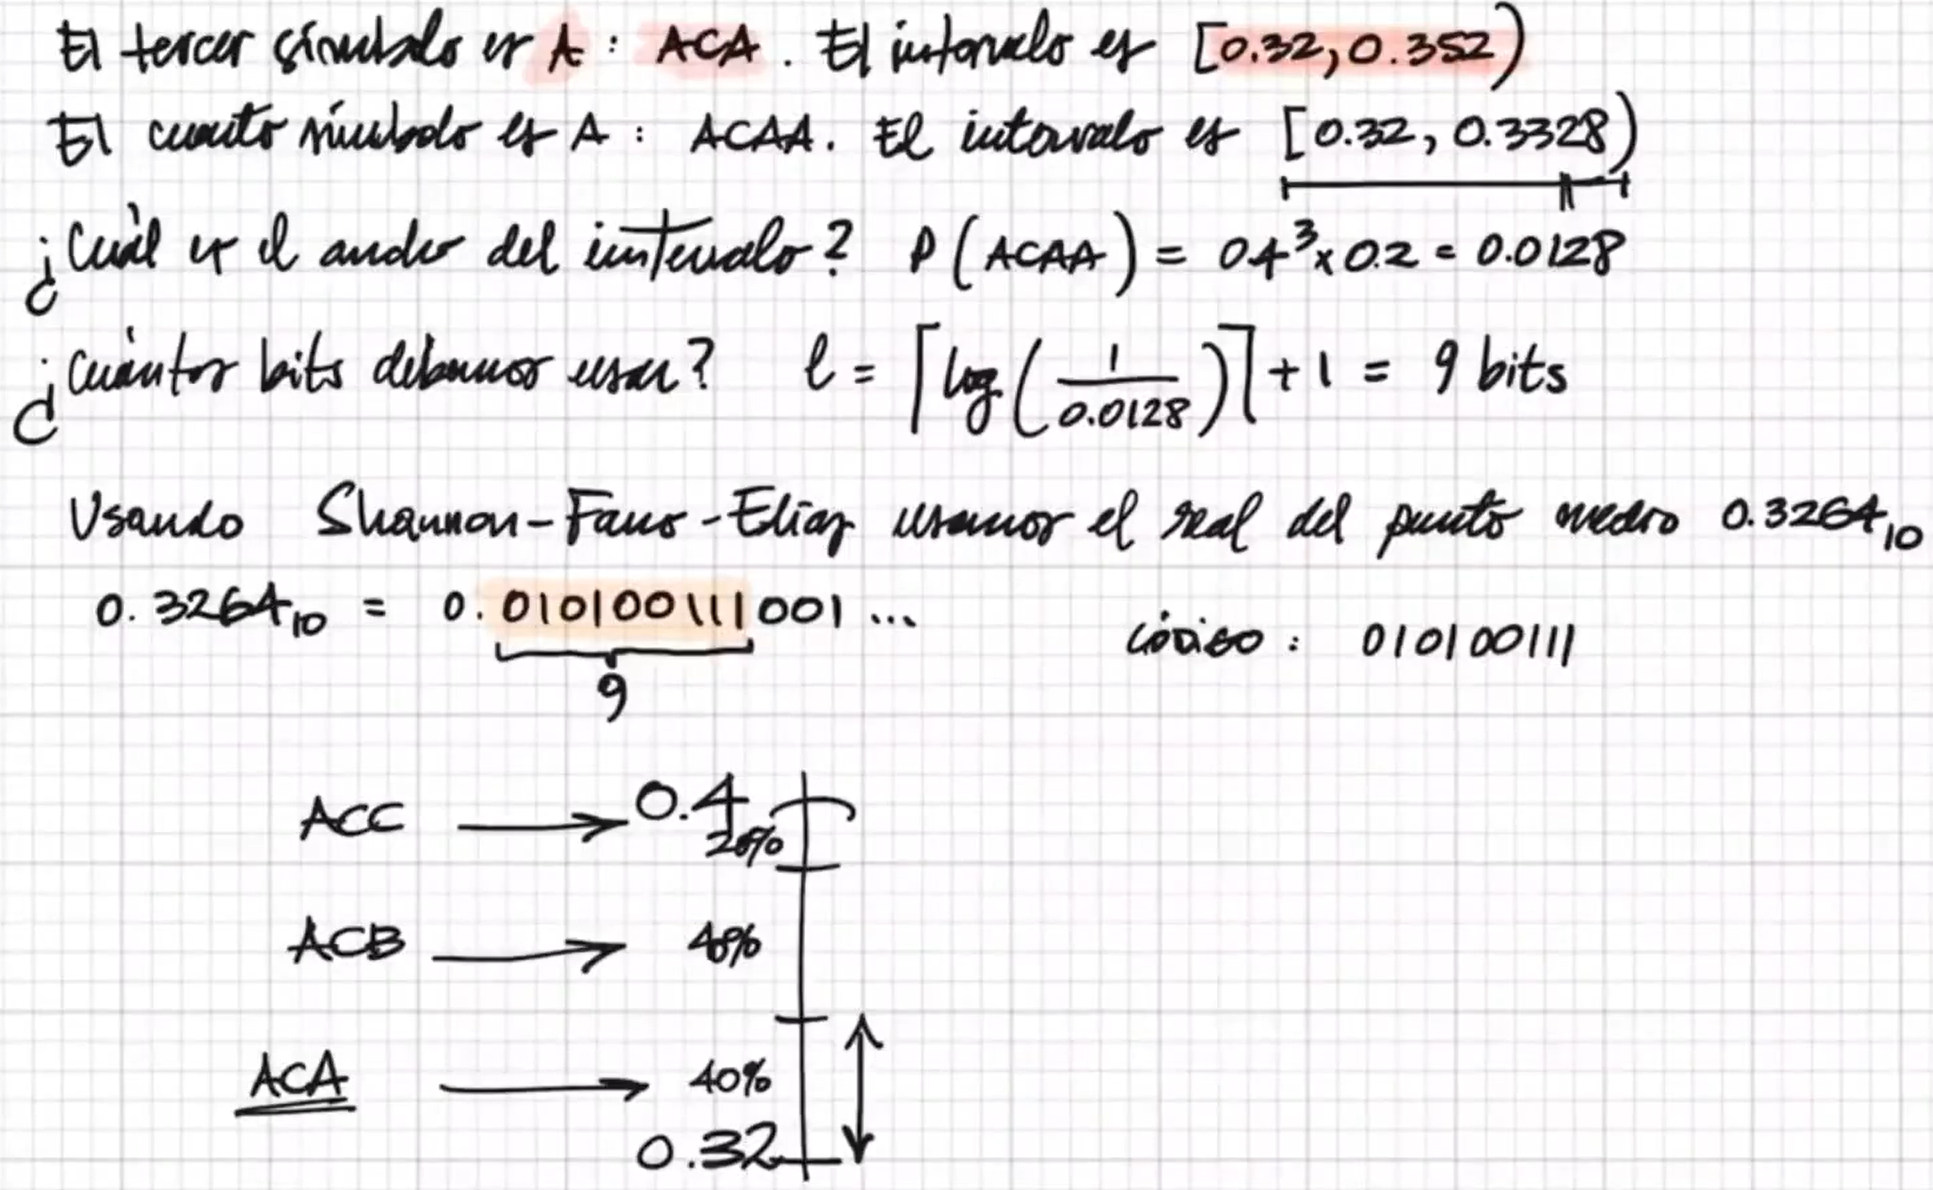 El tercer símbolo es A : ACA . El intervalo es [0.32, 0.352)
El cuarto símbolo es A : ACAA. El intervalo es [0.32, 0.3328)
¿Cuál es el ancho del intervalo? P(ACAA) = 0.4³x0.2 = 0.0128
¿Cuántos bits debemos usar? l = ⌈log(1/0.0128)⌉+1 = 9 bits
Usando Shannon-Fano-Elias usamos el real del punto medio 0.3264₁₀
0.3264₁₀ = 0.010100111001 ... CÓDIGO : 010100111
9
ACC → 0.4
20%
ACB → 40%
ACA → 40%
0.32